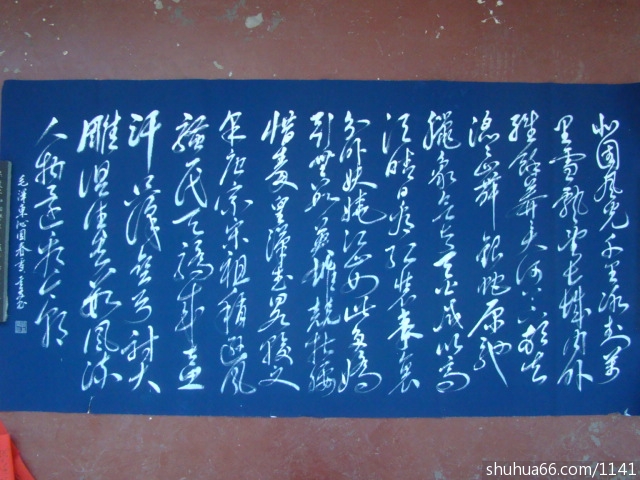 北国风光千里冰封万
里雪飘望长城内外
惟馀莽莽大河上下顿失
滔滔山舞银蛇原驰
腊象欲与天公试比高
须晴日看红装素裹
分外妖娆江山如此多娇
引无数英雄竞折腰
惜秦皇汉武略输文
采唐宗宋祖稍逊风
骚一代天骄成吉思
汗只识弯弓射大
雕俱往矣数风流
人物还看今朝
毛澤東沁园春雪
shuhua66.com/1141